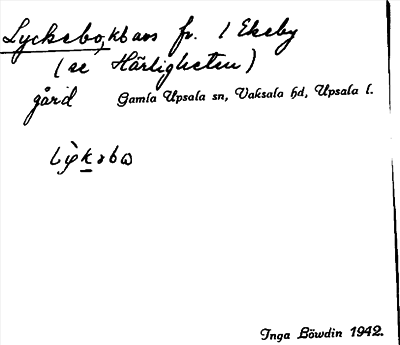 Lyckebo, kb avs fr. 1 Ekeby
(se Härligheten)
gård Gamla Upsala sn, Vaksala hd, Upsala l.
Inga Löwdin 1942.